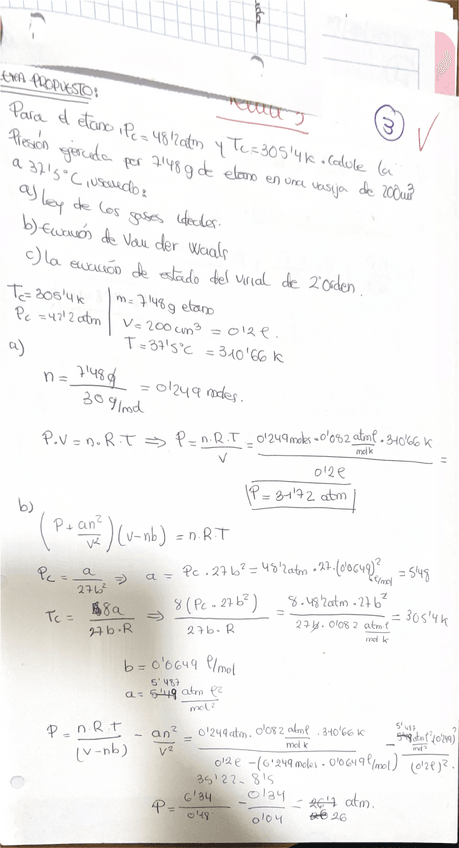 EXTRA PROPUESTO:
3
Para el etano, Pc = 48'2 atm y Tc = 305'4 K. Calcule la
Presión ejercida por 7'48 g de etano en una vasija de 200 cm³
a 37'5°C, usando:
a) Ley de los gases ideales.
b) Ecuación de Van der Waals
c) La ecuación de estado del virial de 2º orden.
Tc = 305'4 K | m = 7'48 g etano
Pc = 42'2 atm | V = 200 cm³ = 0'2 l.
T = 37'5°C = 310'66 K
a)
n = 7'48 g / 30 g/mol = 0'249 moles.
P.V = n.R.T ⇒ P = n.R.T / V = 0'249 moles · 0'082 atm l / mol K · 310'66 K / 0'2 l =
P = 31'72 atm
b)
(P + an² / V²) (V - nb) = n.R.T
Pc = a / 27b² ⇒ a = Pc · 27b² = 48'2 atm · 27 · (0'0649)² l/mol = 5'48
Tc = 8a / 27b·R ⇒ 8 (Pc · 27b²) / 27b·R = 8 · 48'2 atm · 27b² / 27b · 0'082 atm l / mol K = 305'4 K
b = 0'0649 l/mol
a = 5'487 atm l² / mol²
P = n.R.T / (V - nb) - an² / V² = 0'249 atm · 0'082 atm l / mol K · 310'66 K / 0'2 l - (0'249 moles · 0'0649 l/mol) - 5'487 atm l² / mol² (0'249)² / (0'2 l)².
35'22 - 8'5
P = 6'34 / 0'18 - 0'34 / 0'04 = 26'7 atm.
26 26